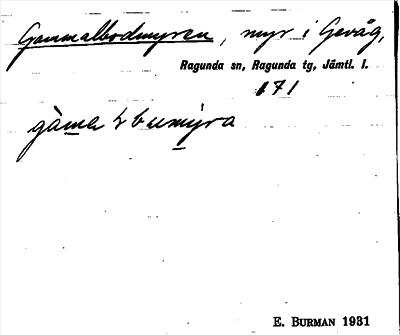 Gammalbodmyren, myr i Gevåg,
Ragunda sn, Ragunda tg, Jämtl. l.
171
E. BURMAN 1931